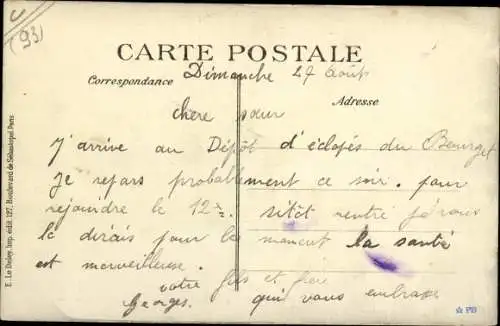 (93)
CARTE POSTALE
Correspondance Dimanche 27 Août
Adresse
chere sœur
j'arrive au Dépôt d'éclopés du Bourget
Je repars probablement ce soir. pour
rejoindre le 12e. sitôt rentré je vous
le dirais pour le moment la santé
est merveilleuse.
votre fils et frère
Georges. qui vous embrasse
E. Le Deley, Imp. édit. 127, Boulevard de Sébastopol, Paris